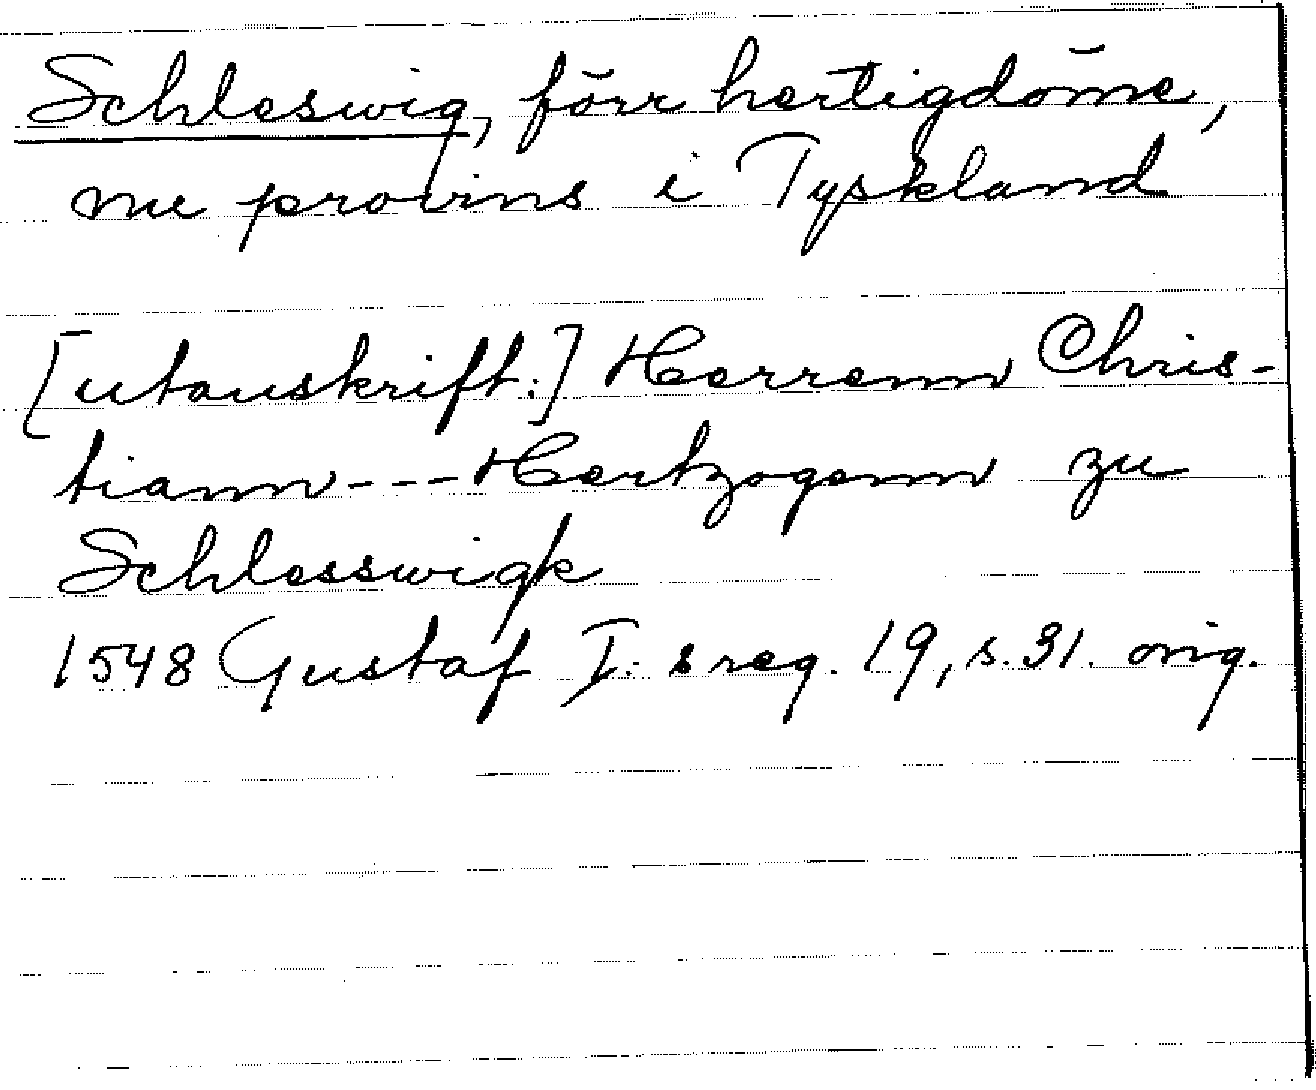 Schleswig, förr hertigdöme,
nu provins i Tyskland
[utanskrift:] Herrenn Chris-
tiann --- Hertzogenn zu
Schlesswigk
1548 Gustaf I:s reg. 19, s. 31. orig.